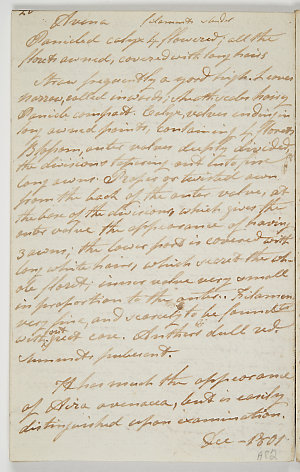 Avena
Panicled calyx 4 flowered, all the
florets awned, covered with long hairs
Straw frequently a yard high. Leaves
narrow, rolled inwards; sheath scales hairy
Panicle compact. Calyx, valves ending in
long awned points, containing 4 florets,
Blossom, outer valve deeply divided
the divisions tapering out into fine
long awns. Proper or twisted awn
from the back of the outer valve, at
the base of the divisions, which gives the
outer valve the appearance of having
3 awns; the lower part is covered with
long white hairs, which
floret; inner valve very small
in proportion to the outer. Filaments
very fine, and scarcely to be found
without great care. Anthers dull red.
Summits, pubescent.
It has much the appearance
of Aira avenacea, but is easily
distinguished upon examination.
Dec - 1801